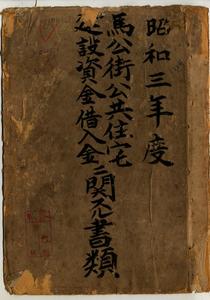 昭和三年度
馬公街公共住宅
建設資金借入金ニ関スル書類